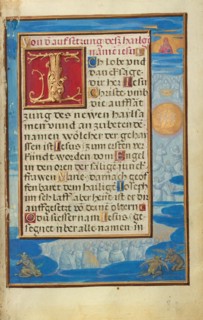 Von d̄ auffsetzung des heilige
namens iesu
Ich lobe vnd
danck sage
dir her Jesu
Christe vmb
die auffsatz
zung des newen hailsa
men vnnd an zubetende
namen wölcher der gehai
ssen ist Jesus zum ersten ver
kündt worden vom Engel
in den oren der sälige iunck
frawen Marie darnach geof
fenbaret dem hailige Joseph
im schlaff aber heut ist er dir
auffgesetzt vō deine oldern
O du süesser nam Jesus ge
segnet vber alle namen in